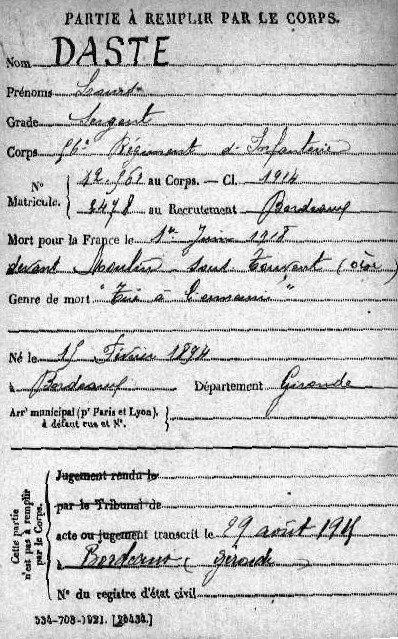 PARTIE À REMPLIR PAR LE CORPS.
Nom DASTE
Prénoms
Grade Sergent
Corps Régiment d'Infanterie
Nº au Corps. — Cl. 1914
Matricule. 2478 au Recrutement Bordeaux
Mort pour la France le 1er Juin 1918
devant Moulin sous Touvent (oise)
Genre de mort "Tué à l'ennemi"
Né le 15 Février 1894
à Bordeaux Département Gironde
Arrt municipal (pr Paris et Lyon),
à défaut rue et Nº.
Cette partie
n'est pas à remplir
par le Corps.
Jugement rendu le
par le Tribunal de
acte ou jugement transcrit le 29 août
à Bordeaux (gironde)
Nº du registre d'état civil
534-708-1921. [26434.]